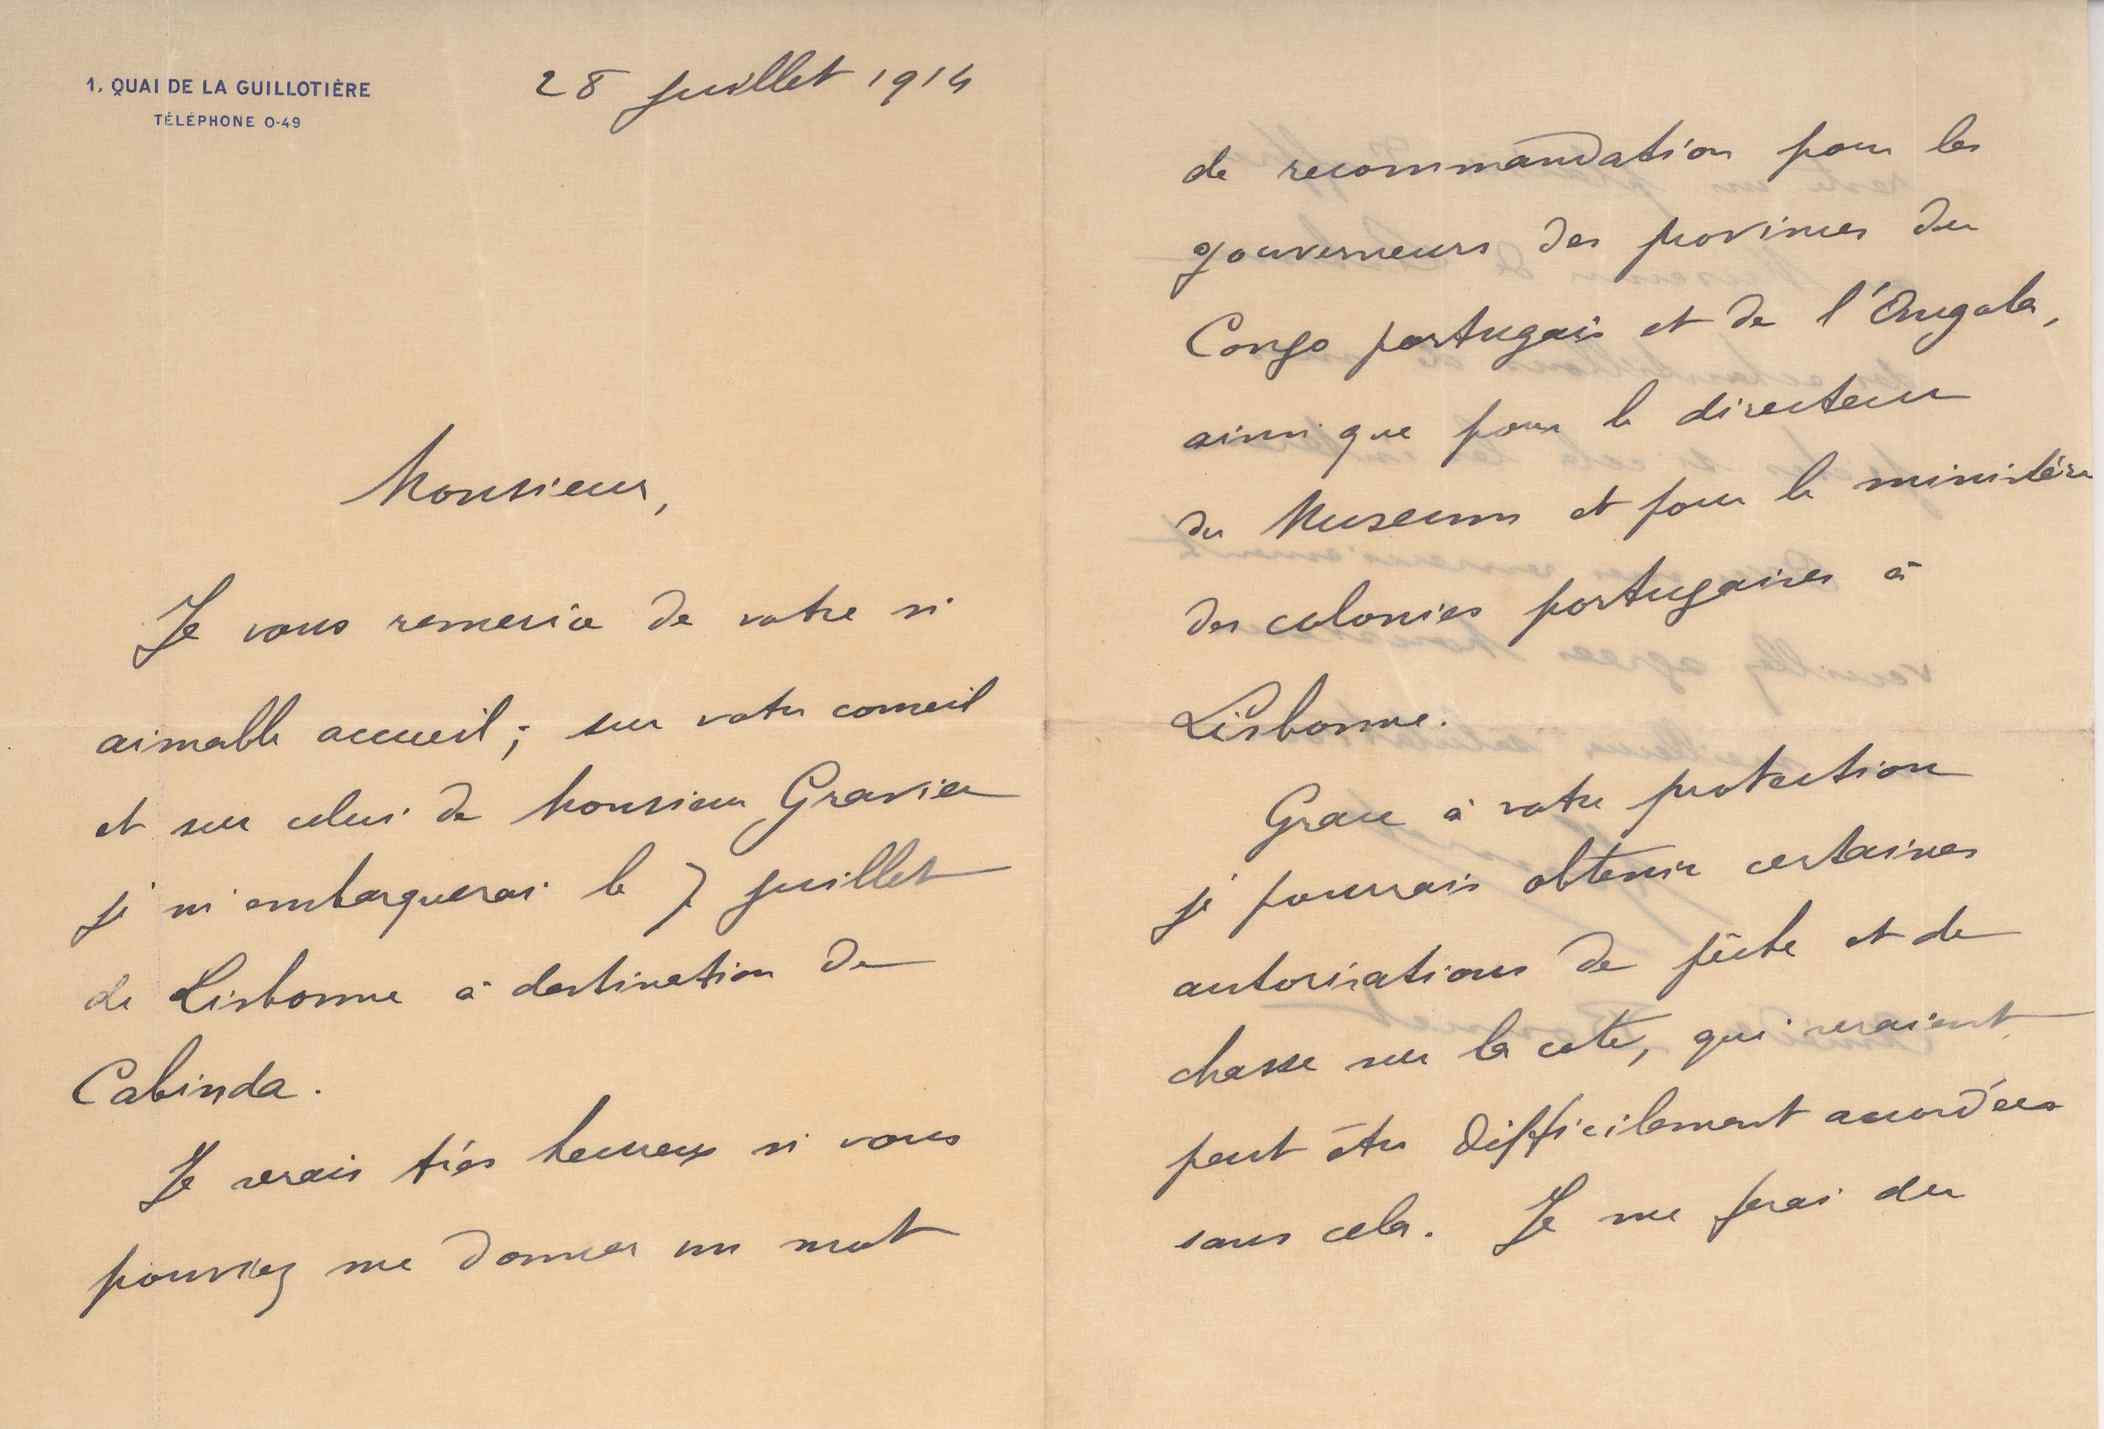 1, QUAI DE LA GUILLOTIÈRE
TÉLÉPHONE 0-49
28 juillet 1914
Monsieur,
Je vous remercie de votre si
aimable accueil; sur votre conseil
et sur celui de Monsieur Gravier
je m'embarquerai le 7 juillet
de Lisbonne à destination de
Cabinda.
Je serais très heureux si vous
pouviez me donner un mot
de recommandation pour les
gouverneurs des provinces du
Congo portugais et de l'Angola,
ainsi que pour le directeur
du Museum et pour le ministère
des colonies portugaises à
Lisbonne.
Grace à votre protection
je pourrais obtenir certaines
autorisations de pêche et de
chasse sur la cote, qui seraient
peut être difficilement accordées
sans cela. Je me ferai du